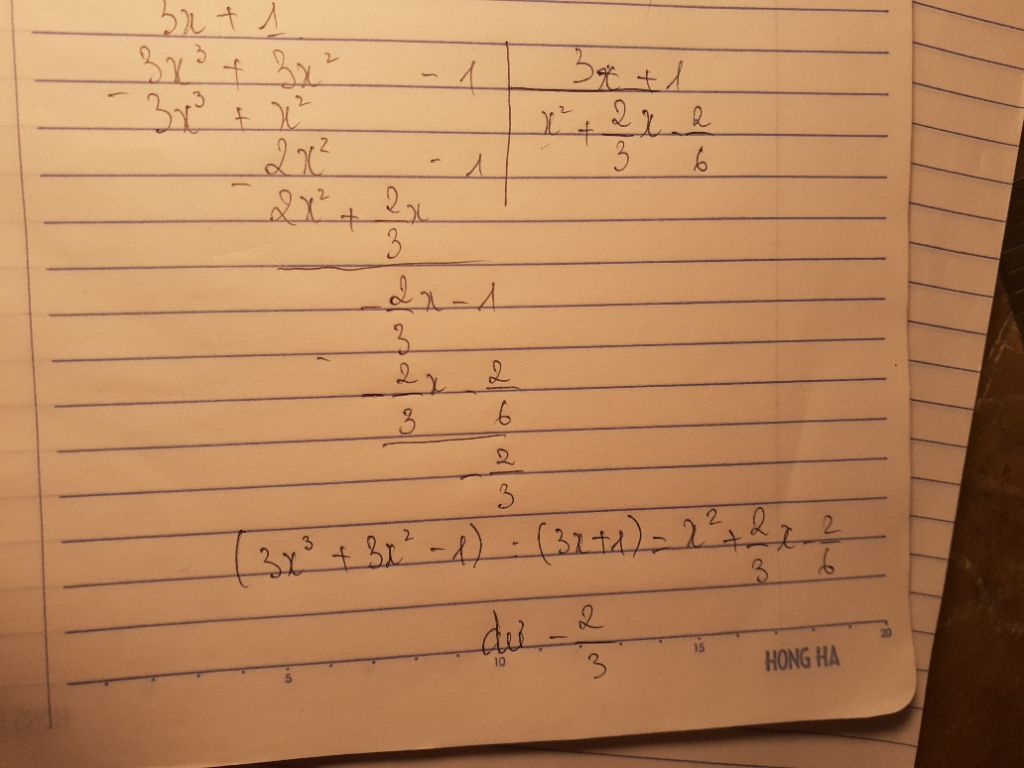 3x + 1
3x³ + 3x² - 1 | 3x + 1
- 3x³ + x² | x² + 2/3 x - 2/6
2x² - 1
- 2x² + 2/3 x
- 2/3 x - 1
- - 2/3 x - 2/6
- 2/3
(3x³ + 3x² - 1) : (3x + 1) = x² + 2/3 x - 2/6
dư - 2/3
5 10 15 20
HONG HA